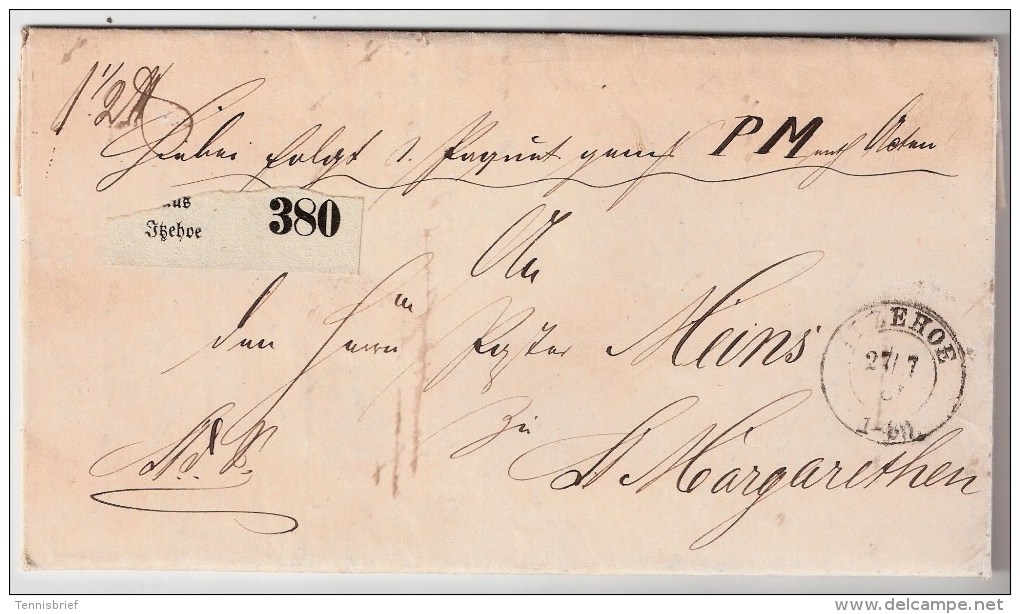 1 1/2 ℔
Hiebei folgt 1 Paquet gem. PM enth. Acten
aus
Itzehoe 380
An
den Herrn Pastor Meins
zu
St Margarethen
ITZEHOE
27 7
Tennisbrief
www.delcampe.net